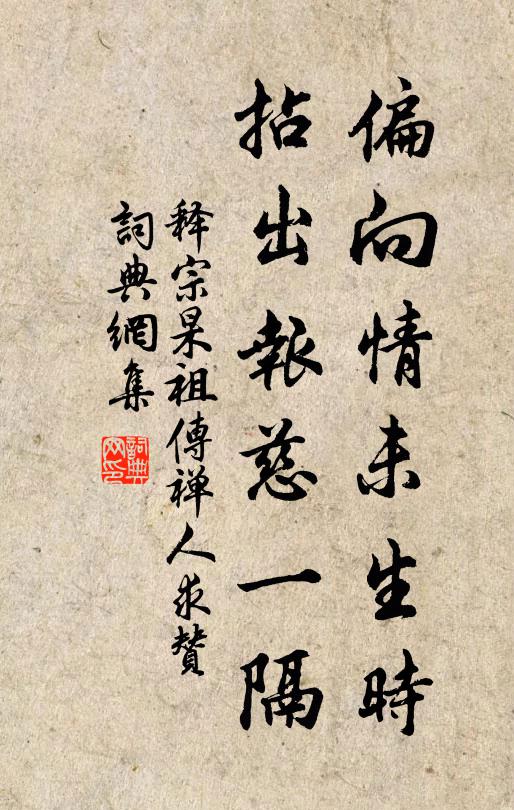 偏向情未生時
拈出報慈一隔
释宗杲祖傳禅人求贊
詞典網集
詞典网印